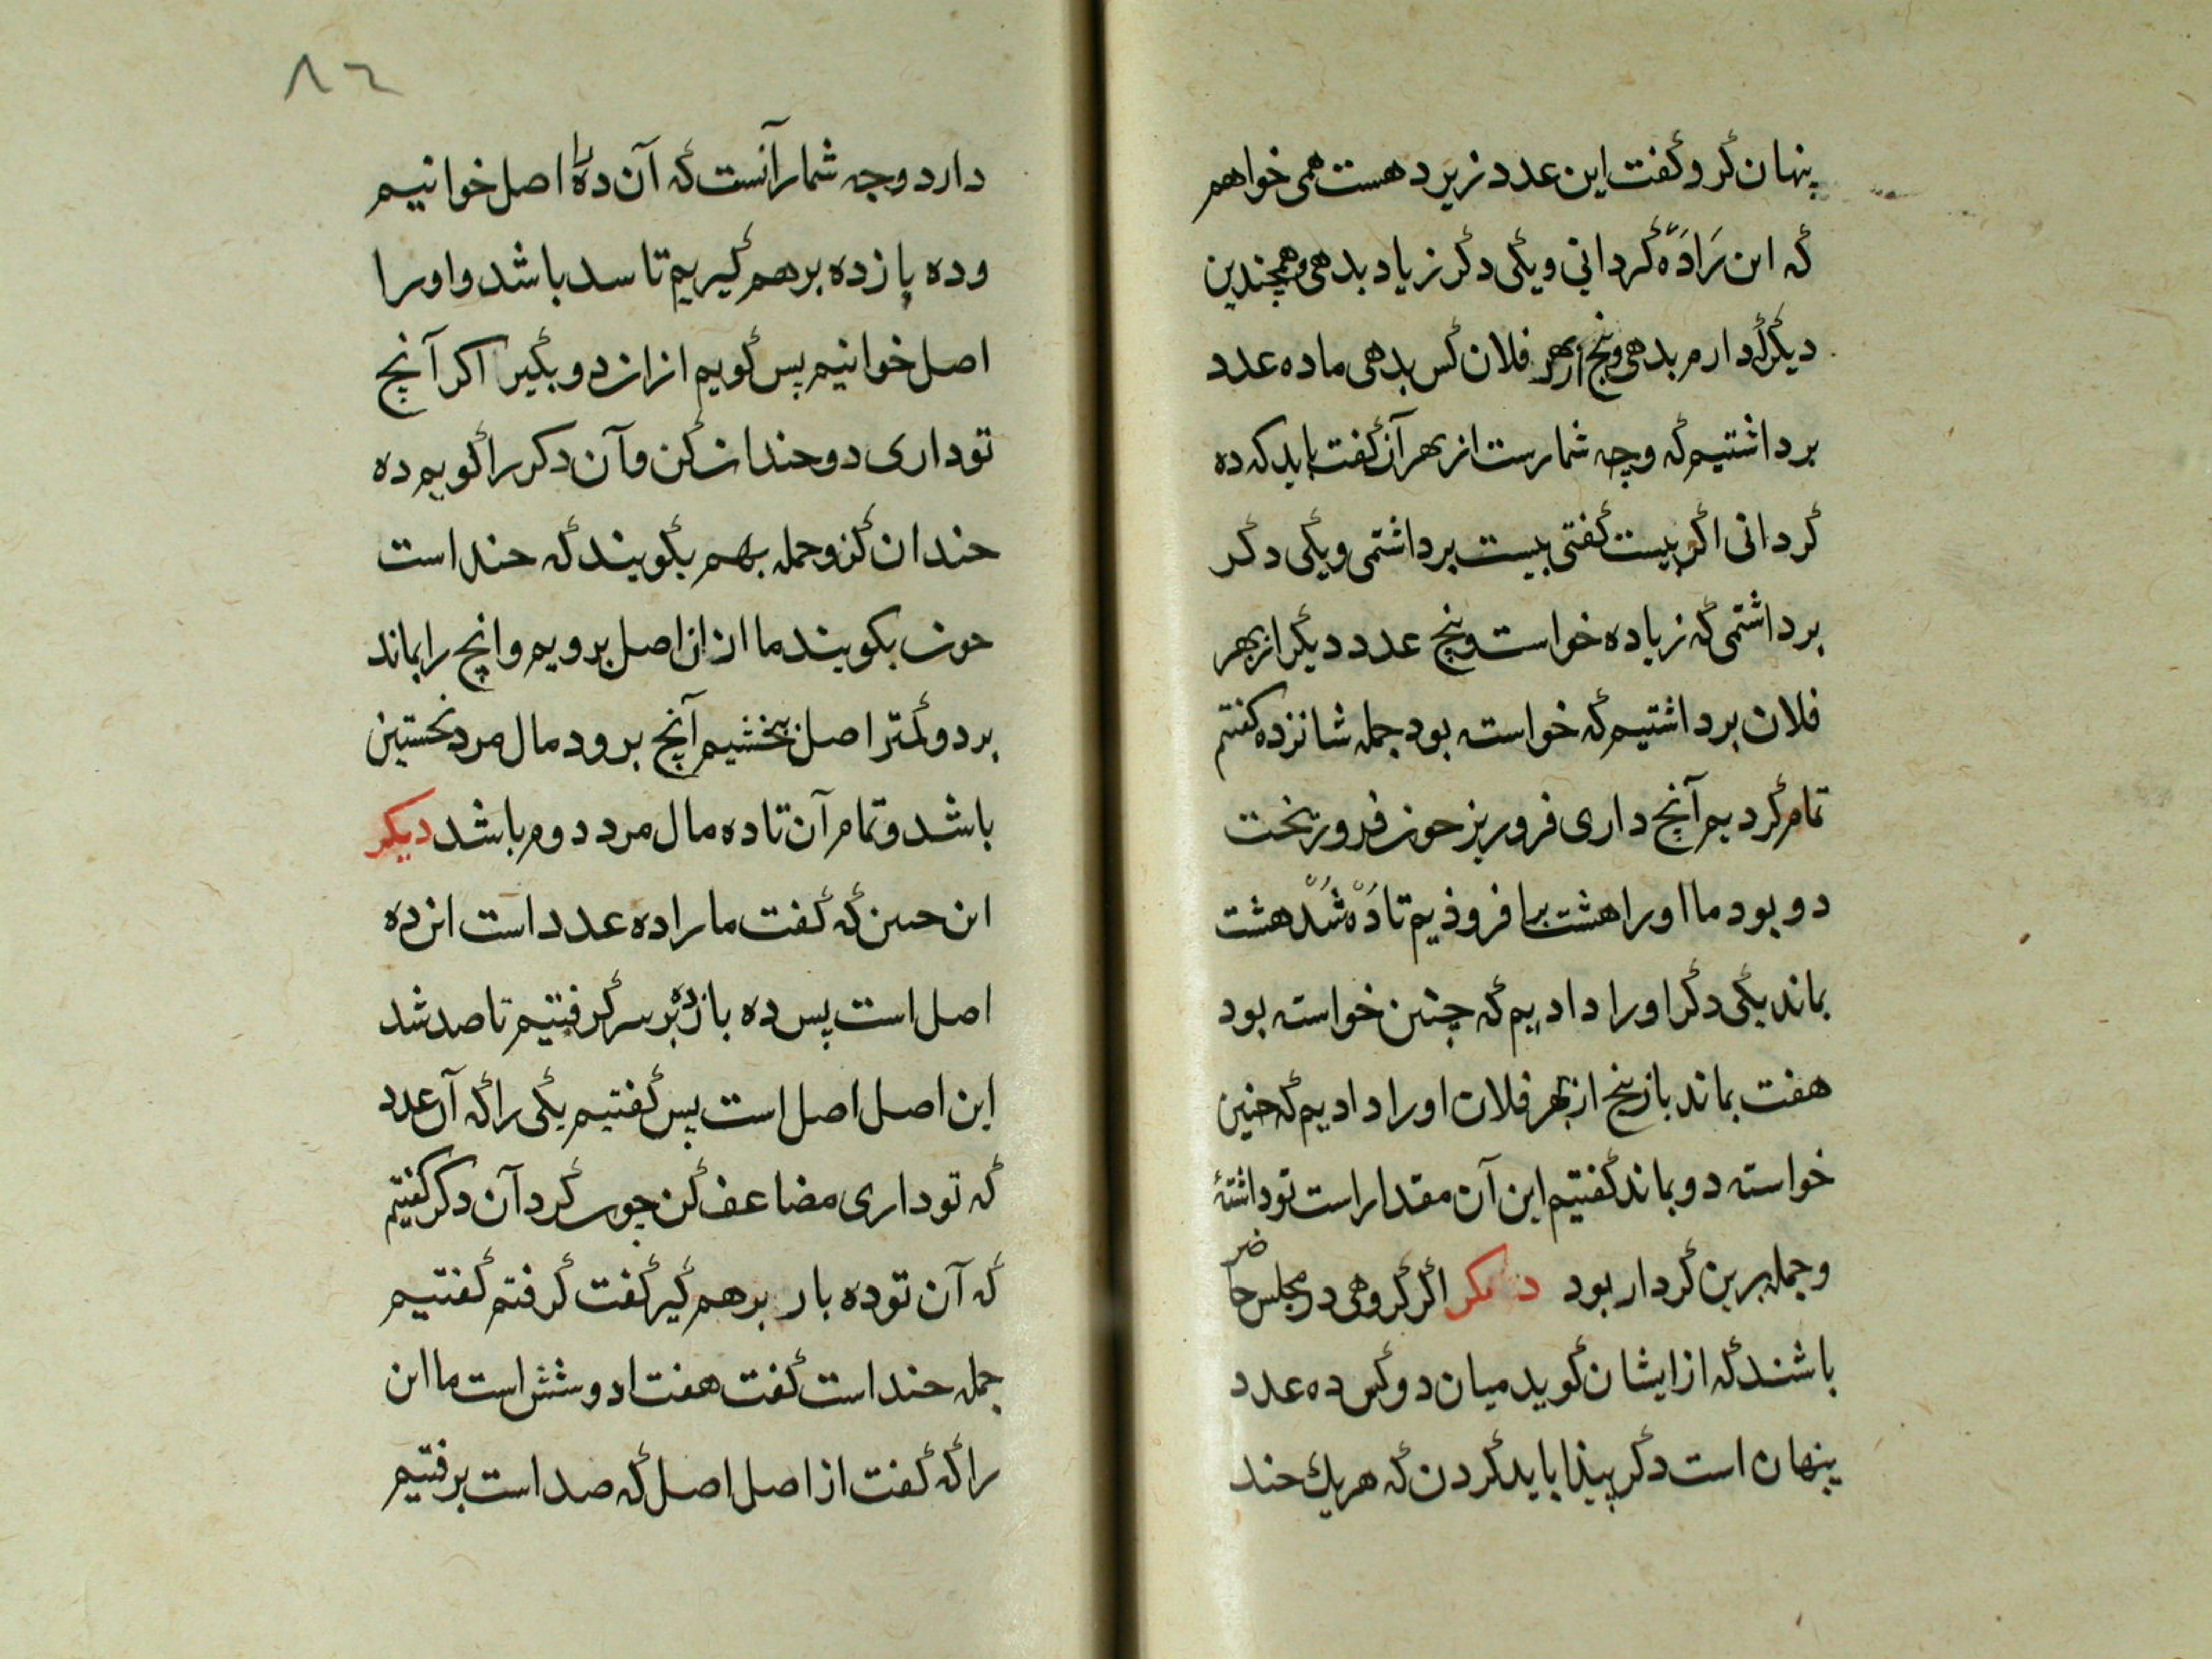 پنهان کرد و گفت این عدد زیر دهست همی خواهم
که این را ده گردانی و یکی دگر زیاد بدهی و همچندین
دیگر که دارم بدهی و پنج از بهر فلان کس بدهی ما ده عدد
برداشتیم که وجه شمارست از بهر آن گفت باید که ده
گردانی اگر بیست گفتی بیست برداشتمی و یکی دگر
برداشتمی که زیاده خواست و پنج عدد دیگر از بهر
فلان برداشتیم که خواسته بود جمله شانزده گفتم
تمام کردیم آنچ داری فروریز حون فروریخت
دو بود ما اورا هشت برافروذیم تا ده شد هشت
بماند یکی دگر اورا دادیم که چنین خواسته بود
هفت بماند باز پنج از بهر فلان اورا دادیم که حنین
خواسته دو بماند گفتیم این آن مقدار است تو داشتۀ
و جمله برین کردار بود دیکر اگر گروهی در مجلس حاضر
باشند که از ایشان گوید میان دو کس ده عدد
پنهان است دگر پیذا باید کردن که هریك حند
۸۲
دارد وجه شمار آنست که آن ده را اصل خوانیم
و ده باز ده برهم گیریم تا سد باشد و اورا
اصل خوانیم پس گویم ازان دو بگیر اکر آنچ
تو داری دوحندان کن و آن دکر را گویم ده
حندان کن و جمله بهم بگویند که حند است
حون بکویند ما ازان اصل برویم و انچ را بماند
بر دو کمتر اصل بخشیم آنچ برود مال مرد نخستین
باشد و تمام آن تا ده مال مرد دوم باشد دیکر
این حنین که گفت ما را ده عدد است از ده
اصل است پس ده باز ده بر سر گرفتیم تا صد شد
این اصل اصل است پس گفتیم یکی را که آن عدد
که تو داری مضاعف کن چون کرد آن دکر گفتیم
که آن تو ده بار برهم گیر گفت گرفتم گفتیم
جمله حند است گفت هفتاد و شش است ما این
را که گفت از اصل اصل که صد است برفتیم